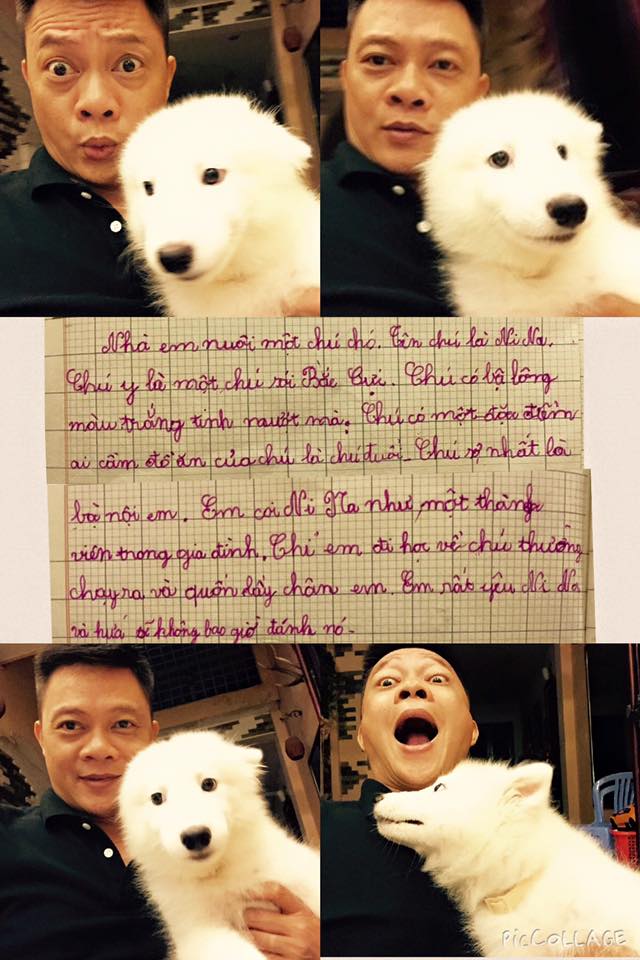 Nhà em nuôi một chú chó. Tên chú là Ni Na.
Chú ý là một chú sói Bắc Cực. Chú có bộ lông
màu trắng tinh mượt mà. Chú có một đặc điểm
ai cầm đồ ăn của chú là chú đuổi. Chú sợ nhất là
bà nội em. Em coi Ni Na như một thành
viên trong gia đình. Khi em đi học về chú thường
chạy ra và quấn lấy chân em. Em rất yêu Ni Na
và hứa sẽ không bao giờ đánh nó.
PIC COLLAGE